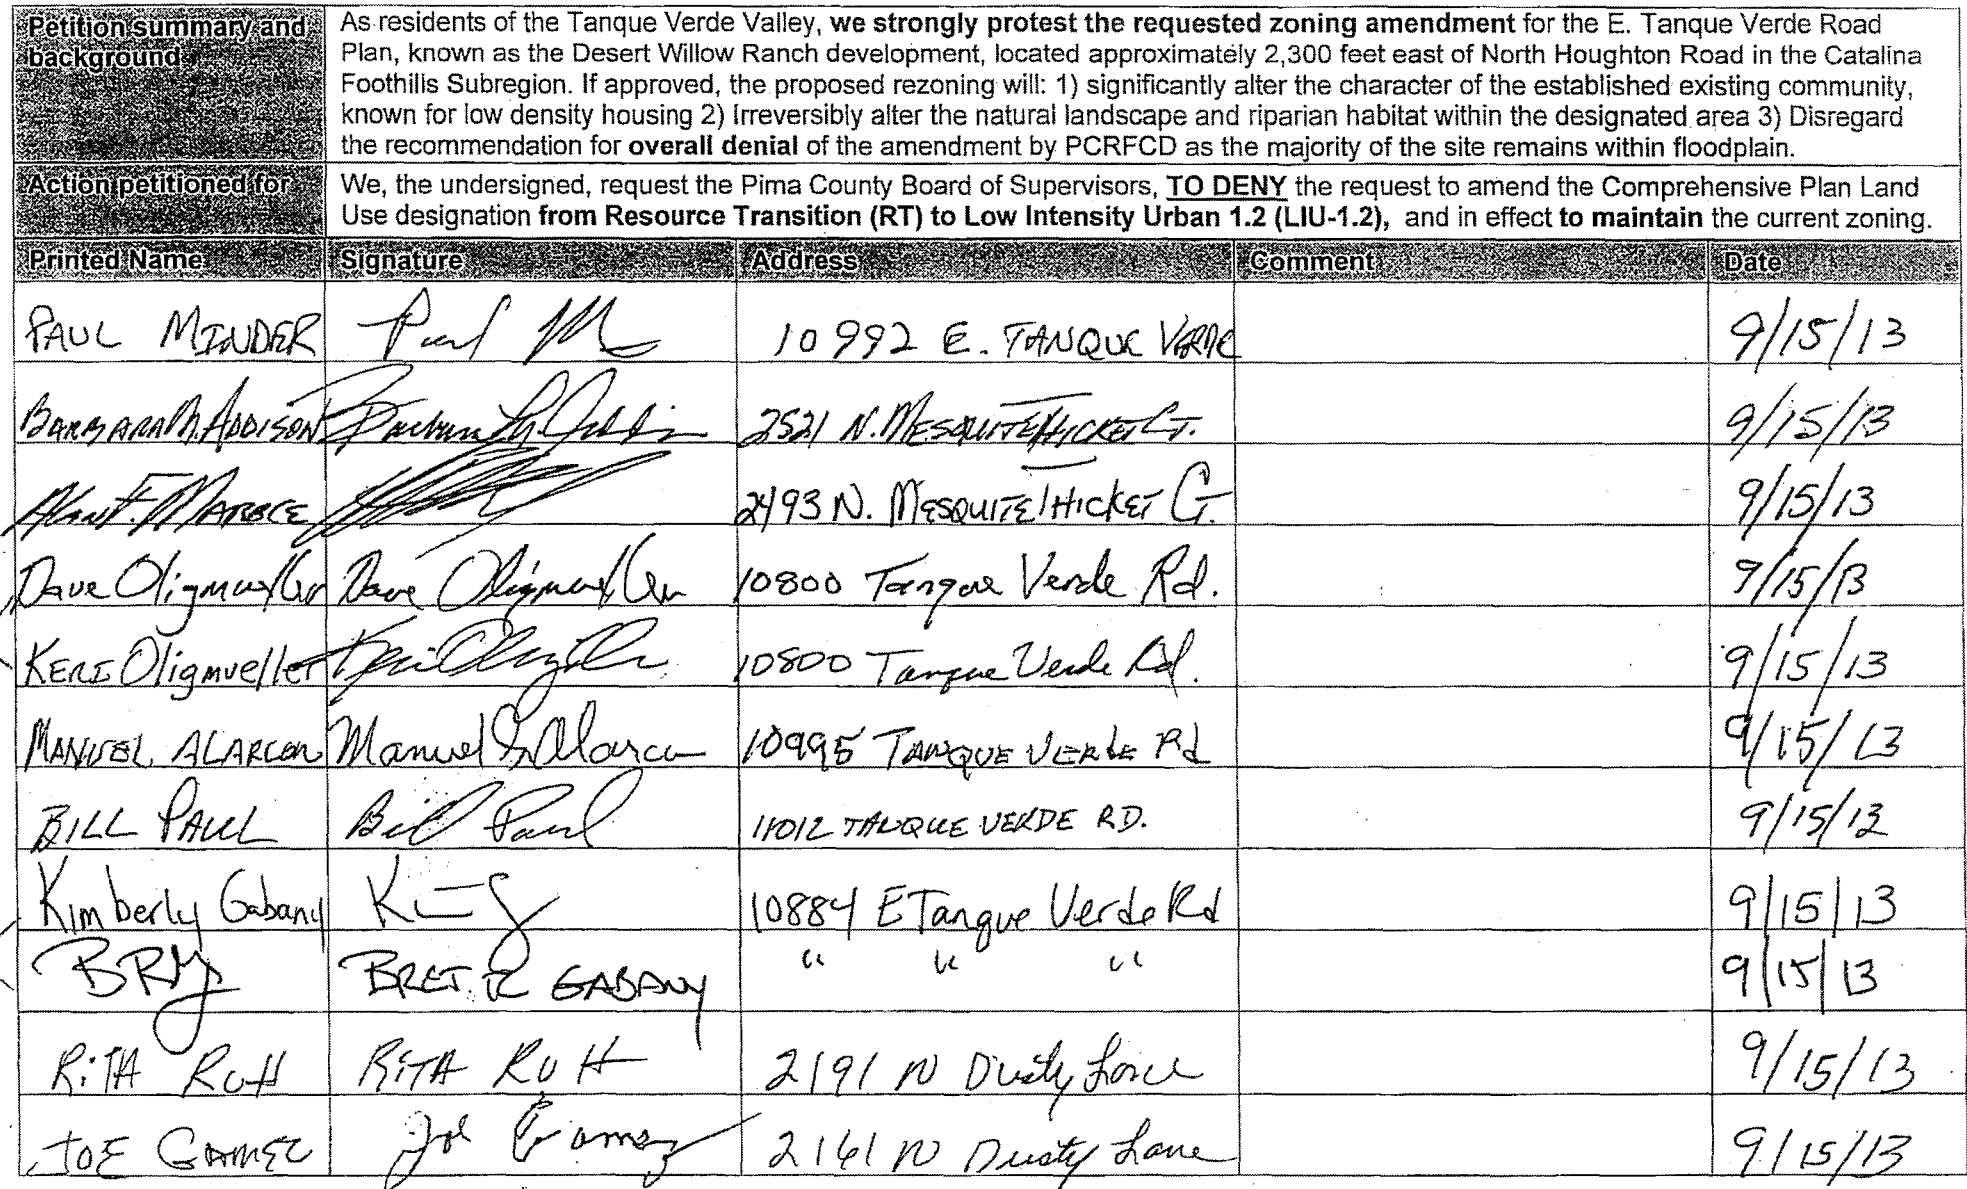 Petition summary and background
As residents of the Tanque Verde Valley, we strongly protest the requested zoning amendment for the E. Tanque Verde Road
Plan, known as the Desert Willow Ranch development, located approximately 2,300 feet east of North Houghton Road in the Catalina
Foothills Subregion. If approved, the proposed rezoning will: 1) significantly alter the character of the established existing community,
known for low density housing 2) Irreversibly alter the natural landscape and riparian habitat within the designated area 3) Disregard
the recommendation for overall denial of the amendment by PCRFCD as the majority of the site remains within floodplain.
Action petitioned for
We, the undersigned, request the Pima County Board of Supervisors, TO DENY the request to amend the Comprehensive Plan Land
Use designation from Resource Transition (RT) to Low Intensity Urban 1.2 (LIU-1.2), and in effect to maintain the current zoning.
Printed Name Signature Address Comment Date
PAUL MINDER Paul M 10992 E. TANQUE VERDE 9/15/13
BARBARA M. ADDISON Barbara M. Addison 2521 N. MESQUITE THICKET CT. 9/15/13
F. 2493 N. MESQUITE THICKET CT. 9/15/13
Dave Oligmueller Dave Oligmueller 10800 Tanque Verde Rd. 9/15/13
KERI Oligmueller Keri Oligmueller 10800 Tanque Verde Rd. 9/15/13
MANUEL ALARCON Manuel Alarcon 10995 TANQUE VERDE Rd 9/15/13
BILL PAUL Bill Paul 11012 TANQUE VERDE RD. 9/15/13
Kimberly Gabany 10884 E Tanque Verde Rd 9/15/13
BRET R GABANY " " " 9/15/13
RITA RUH RITA RUH 2191 N Dusty Lane 9/15/13
JOE GAMEZ Joe Gamez 2161 N Dusty Lane 9/15/13